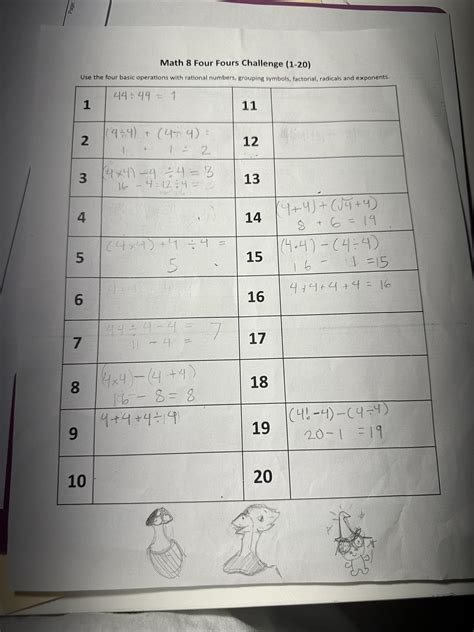 Math 8 Four Fours Challenge (1-20)
Use the four basic operations with rational numbers, grouping symbols, factorial, radicals and exponents.
1
44÷44 = 1
11
2
(4÷4) + (4÷4) =
1 + 1 = 2
12
3
(4×4) -4 ÷4 = 3
16 - 4=12÷4 =
13
4
14
(4+4) + (√4+4)
8 + 6 = 14
5
(4×4) +4 ÷4 =
5
15
(4·4) - (4÷4)
16 - 1 =15
6
16
4+4+4+4 = 16
7
44÷4-4 = 7
11 - 4 =
17
8
(4×4)-(4+4)
16 - 8 = 8
18
9
4+4+4÷4
19
(4!-4)-(4÷4)
20-1 =19
10
20